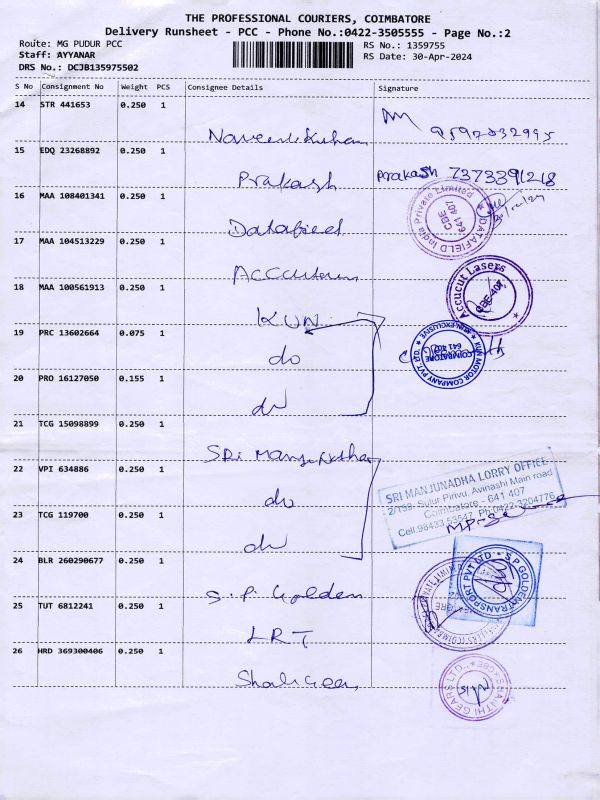 THE PROFESSIONAL COURIERS, COIMBATORE
Delivery Runsheet - PCC - Phone No.:0422-3505555 - Page No.:2
Route: MG PUDUR PCC
RS No.: 1359755
Staff: AYYANAR
RS Date: 30-Apr-2024
DRS No.: DCJB135975502
S No Consignment No Weight PCS Consignee Details Signature
14 STR 441653 0.250 1
15 EDQ 23268892 0.250 1
Prakash Prakash 7373391218
16 MAA 108401341 0.250 1
Datafield
DATAFIELD India Private Limited
CBE
641 407
17 MAA 104513229 0.250 1
18 MAA 100561913 0.250 1
KUN
Accucut Lasers
CBE-407
19 PRC 13602664 0.075 1
do
KUN MOTOR COMPANY PVT LTD. KUN EXCLUSIVE
COIMBATORE
641 407
20 PRO 16127050 0.155 1
do
21 TCG 15098899 0.250 1
SRi
22 VPI 634886 0.250 1
do
SRI MANJUNADHA LORRY OFFICE
2/159, Sulur Pirivu, Avinashi Main road
Coimbatore - 641 407
Cell:98433 53547, Ph:0422-3204776
23 TCG 119700 0.250 1
do
24 BLR 260290677 0.250 1
S.P. Golden
S.P. GOLDEN TRANSPORT PVT LTD
25 TUT 6812241 0.250 1
LRT
26 HRD 369300406 0.250 1
SHANTHI GEARS LTD., CBE